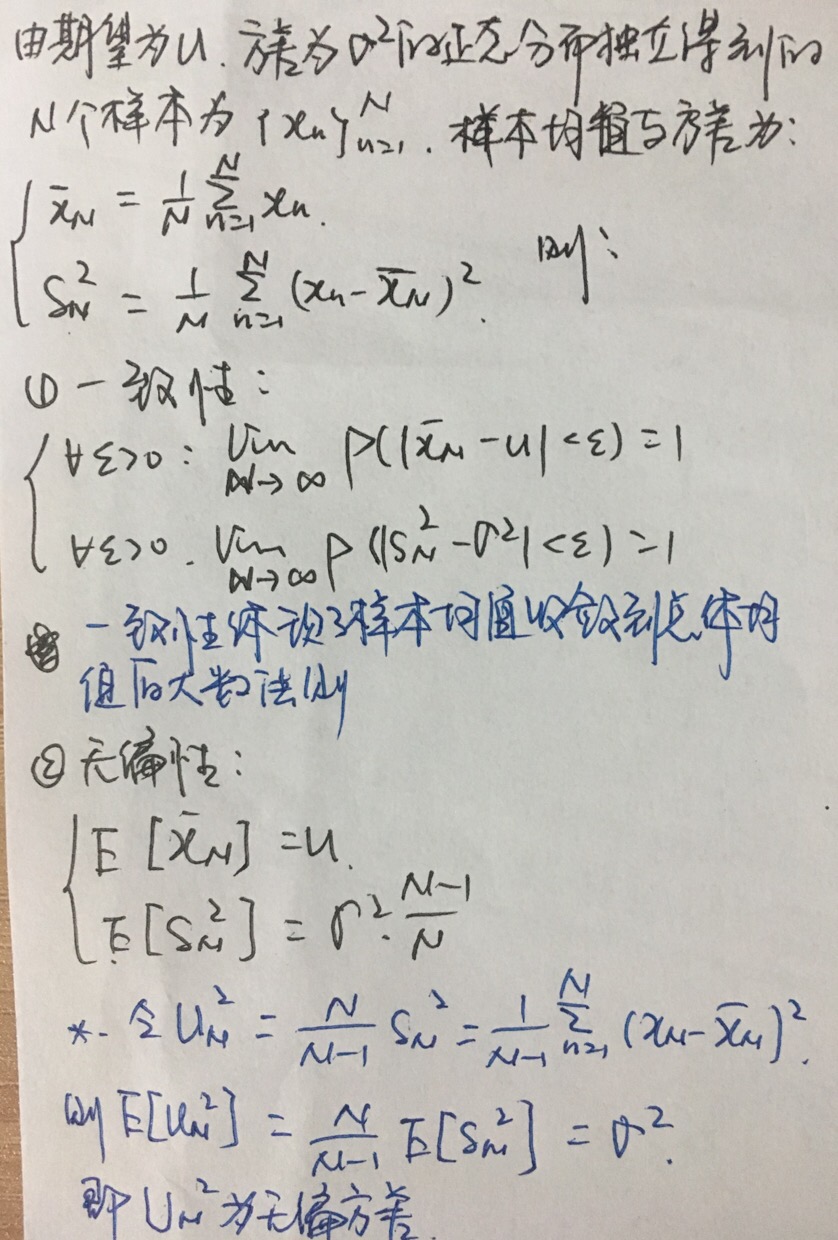 由期望为u.方差为σ²的正态分布独立得到的
N个样本为{xₙ}ₙ₌₁ᴺ.样本均值与方差为:
x̄_N = 1/N Σₙ₌₁ᴺ xₙ.
S_N² = 1/N Σₙ₌₁ᴺ (xₙ - x̄_N)². 则:
① 一致性:
∀ε>0: lim_{N→∞} P(|x̄_N - u| < ε) = 1
∀ε>0. lim_{N→∞} P(|S_N² - σ²| < ε) = 1
一致性体现了样本均值收敛到总体均
值的大数法则
② 无偏性:
E[x̄_N] = u.
E[S_N²] = σ²·(N-1)/N
*. 令 U_N² = N/(N-1) S_N² = 1/(N-1) Σₙ₌₁ᴺ (x_N - x̄_N)².
则 E[U_N²] = N/(N-1) E[S_N²] = σ².
即 U_N² 为无偏方差.